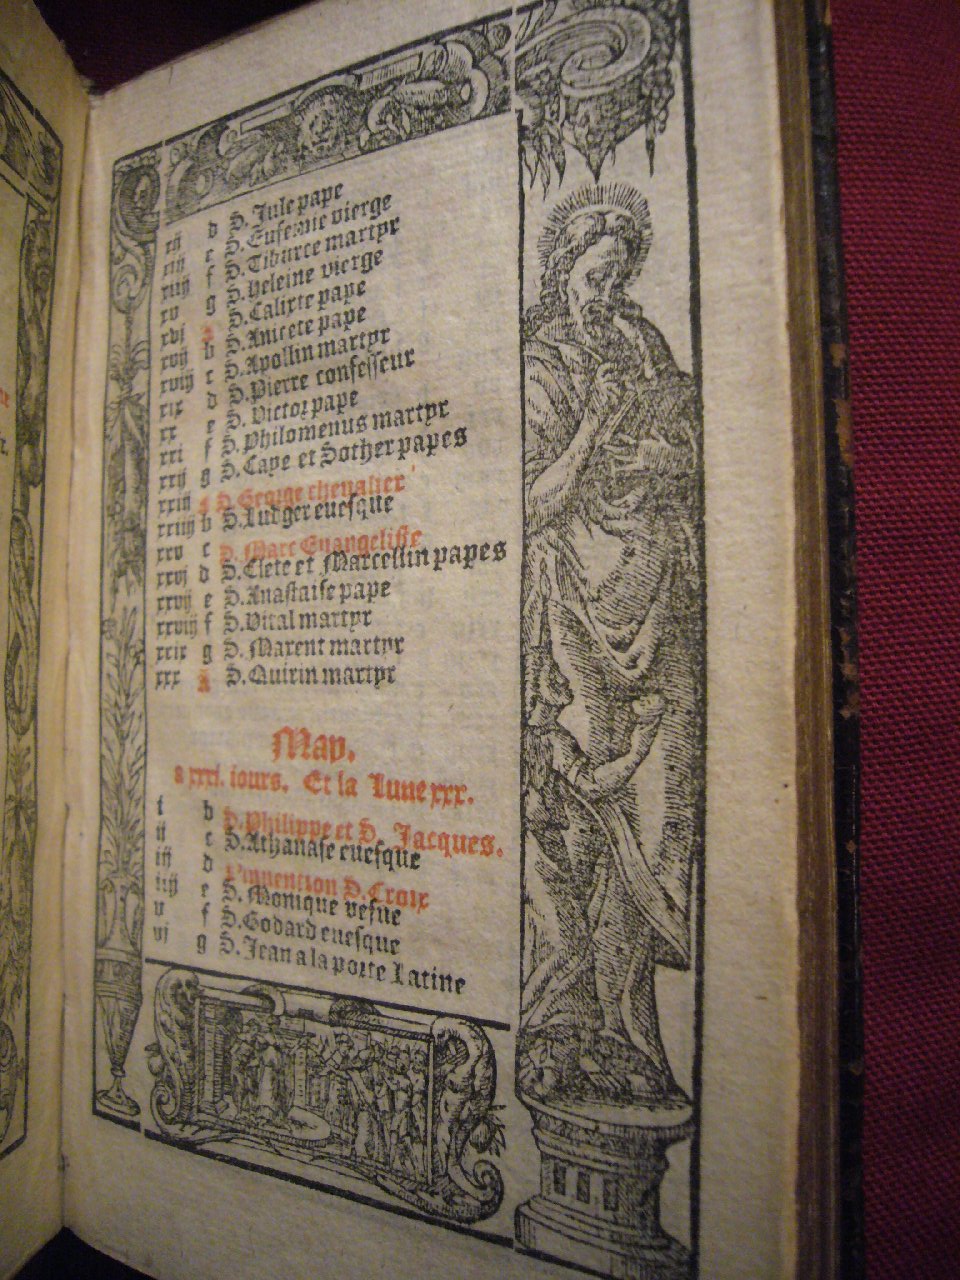 xij d S. Jule pape
xiij e S. Eufemie vierge
xiiij f S. Tiburce martyr
xv g S. Heleine vierge
xvj A S. Calixte pape
xvij b S. Anicete pape
xviij c S. Apollin martyr
xix d S. Pierre confesseur
xx e S. Victor pape
xxi f S. Philomenus martyr
xxij g S. Caye et Sother papes
xxiij A S. George chevalier
xxiiij b S. Ludger euesque
xxv c S. Marc Euangeliste
xxvj d S. Clete et Marcellin papes
xxvij e S. Anastaise pape
xxviij f S. Vital martyr
xxix g S. Marent martyr
xxx A S. Quirin martyr
May.
a xxxi. iours. Et la Lune xxx.
i b S. Philippe et S. Jacques.
ij c S. Athanase euesque
iij d L'inuention S. Croix
iiij e S. Monique vefue
v f S. Godard euesque
vj g S. Jean a la porte Latine